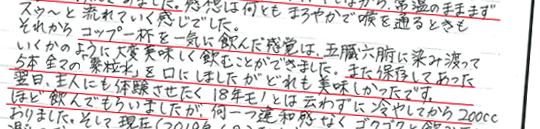 感想は何ともまろやかで喉を通るときも
スゥ〜と流れていく感じでした。
それからコップ一杯を一気に飲んだ感覚は、五臓六腑に染み渡って
いくかのように大変美味しく飲むことができました。また保存してあった
5本全ての「素粒水」を口にしましたがどれも美味しかったです。
翌日、主人にも体験させたく18年モノとは云わずに冷やしてから200cc
ほど飲んでもらいましたが、何一つ違和感なくゴクゴクと飲
おりました。そして現在(2019年